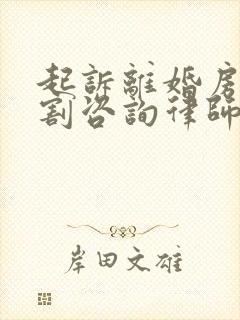 起訴離婚房
割咨詢律師
岸田文雄